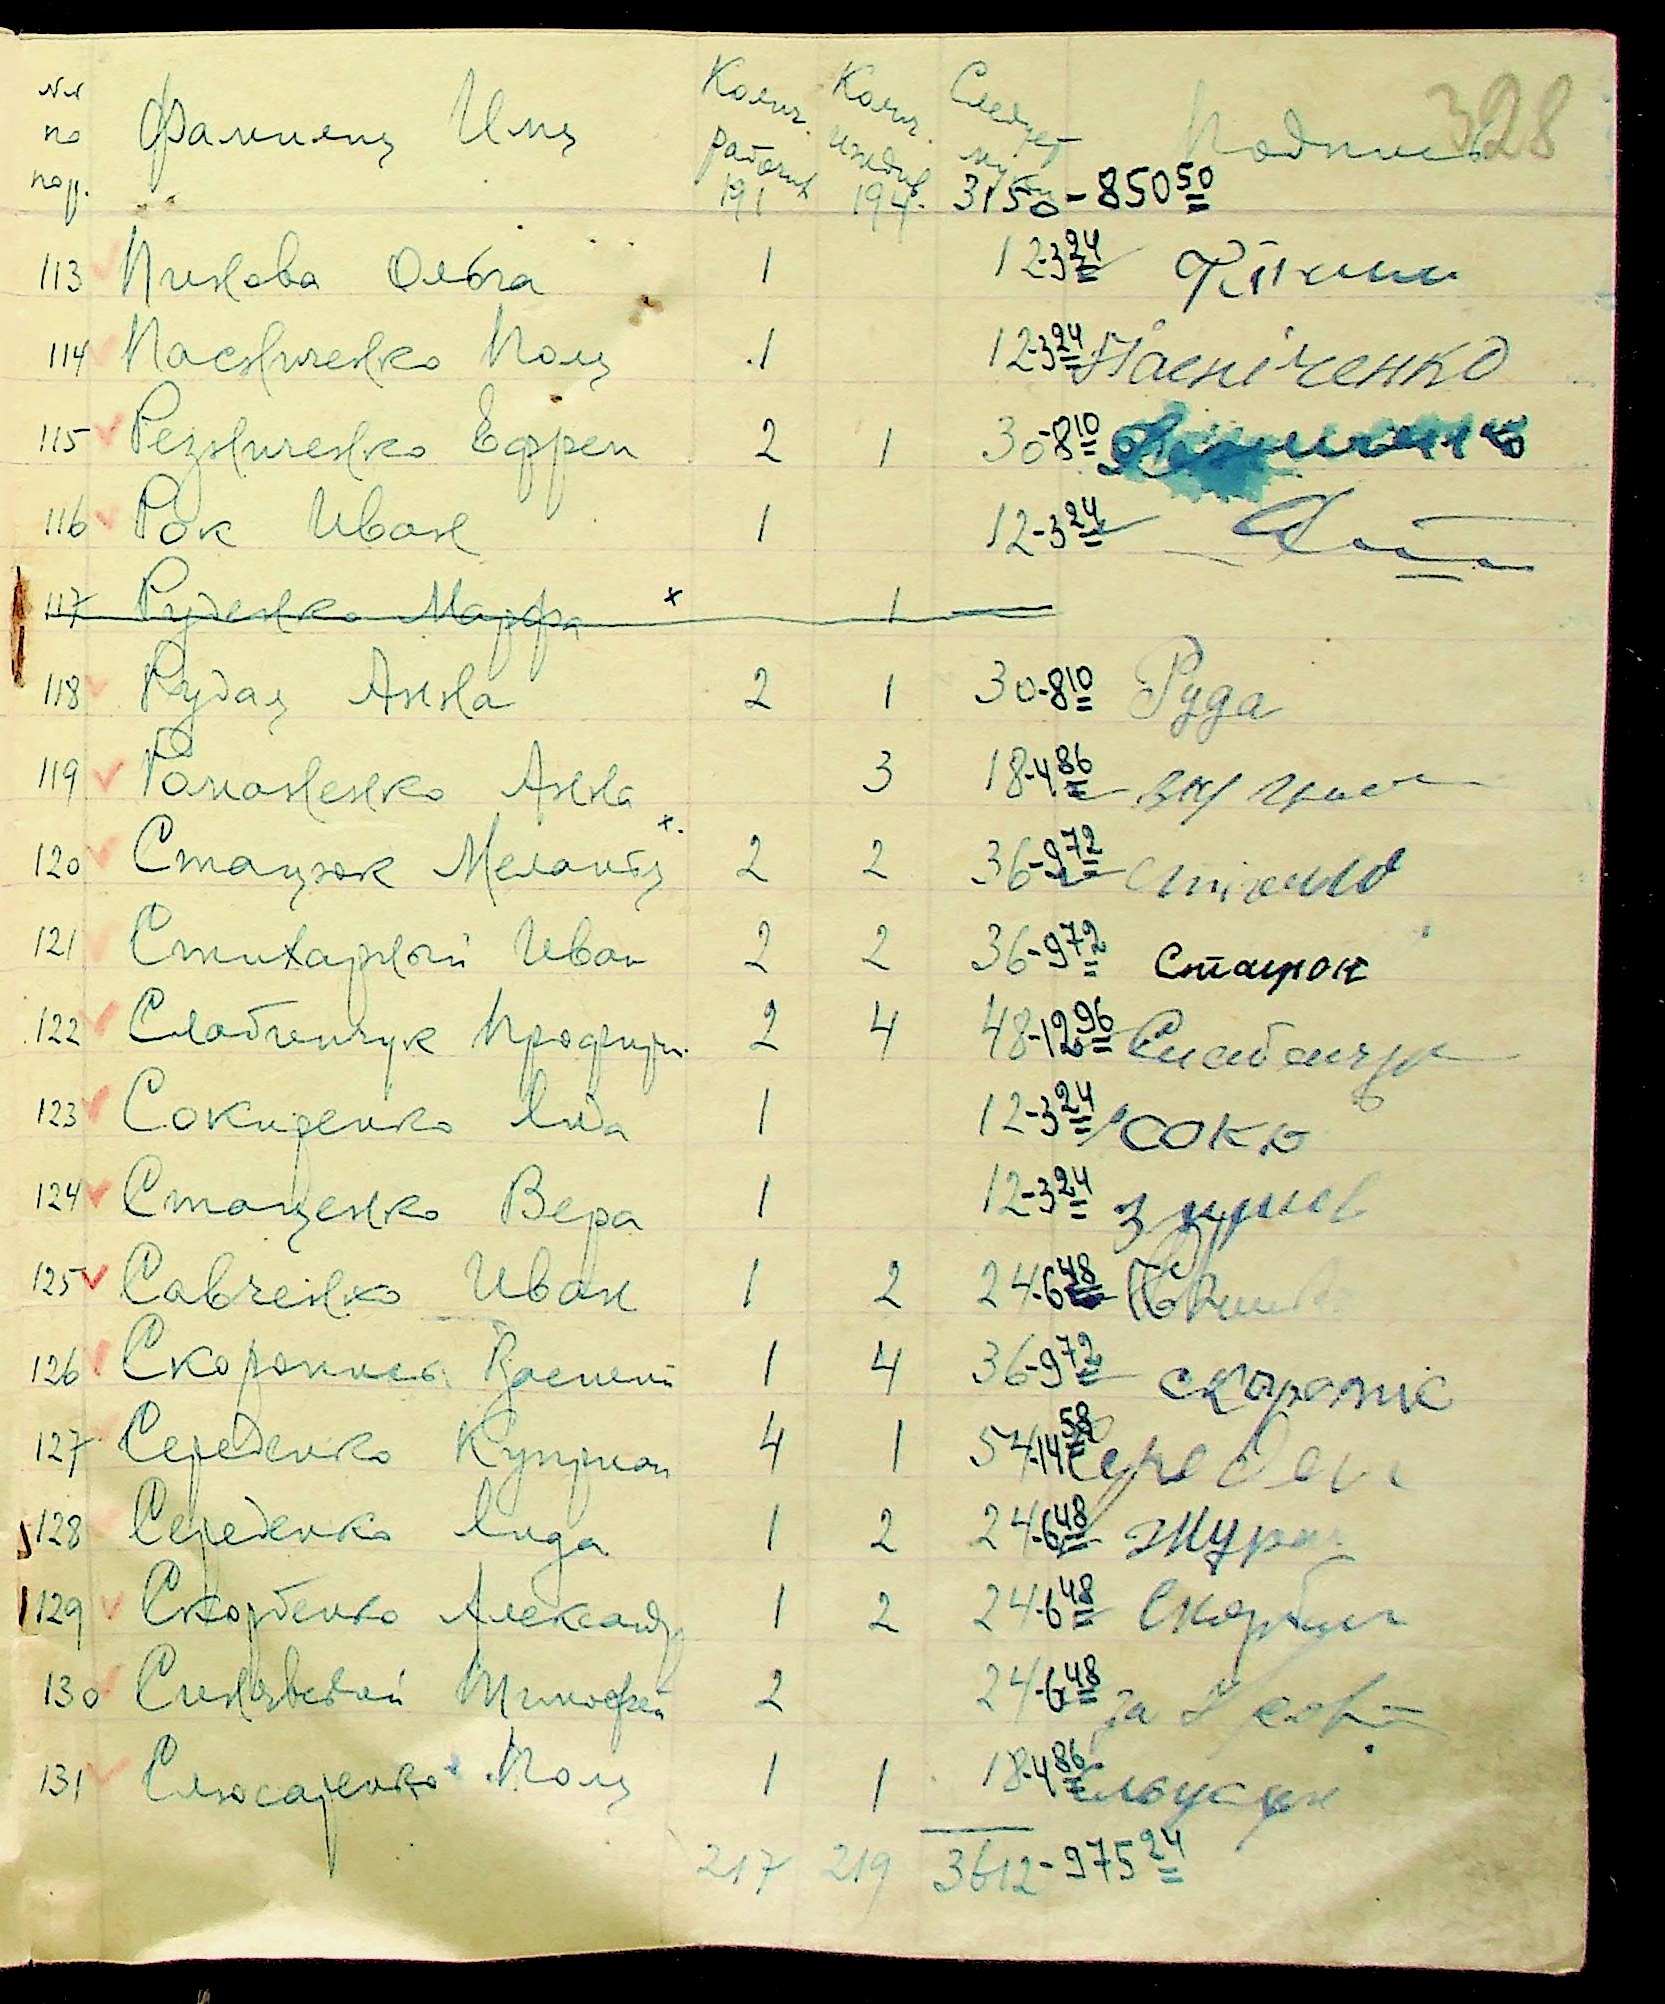 328
№№ по пор. Фамилия Имя Колич. рабочих Колич. иждив. Следует муки Подпись
191 194. 3150 - 850 50
113 Пинова Ольга 1 12-3 24
114 Пасниченко Поля 1 12-3 24 Пасніченко
115 Резниченко Ефрем 2 1 30-8 10
116 Рок Иван 1 12-3 24
117 Руденко Марфа x 1
118 Рудая Анна 2 1 30-8 10 Руда
119 Романенко Анна 3 18-4 86
120 Стацюк Меланья x. 2 2 36-9 72
121 Стихарный Иван 2 2 36-9 72 Стацюк
122 Слабинчук 2 4 48-12 96
123 Сокиренко Лида 1 12-3 24 соко
124 Стаценко Вера 1 12-3 24
125 Савченко Иван 1 2 24-6 48
126 Василий 1 4 36-9 72
127 Середенко Куприян 4 1 54-14 58
128 Середенко Лида 1 2 24-6 48
129 Скорбенко Александр 1 2 24-6 48
130 Тимофей 2 24-6 48 за
131 Слюсаренко Поля 1 1 18-4 86
217 219 3612 - 975 24